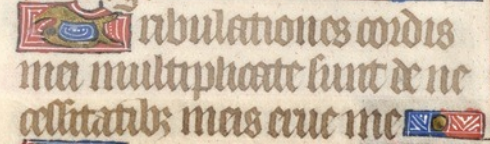 Tribulationes cordis
mei multiplicate sunt de ne
cessitatibꝫ meis erue me